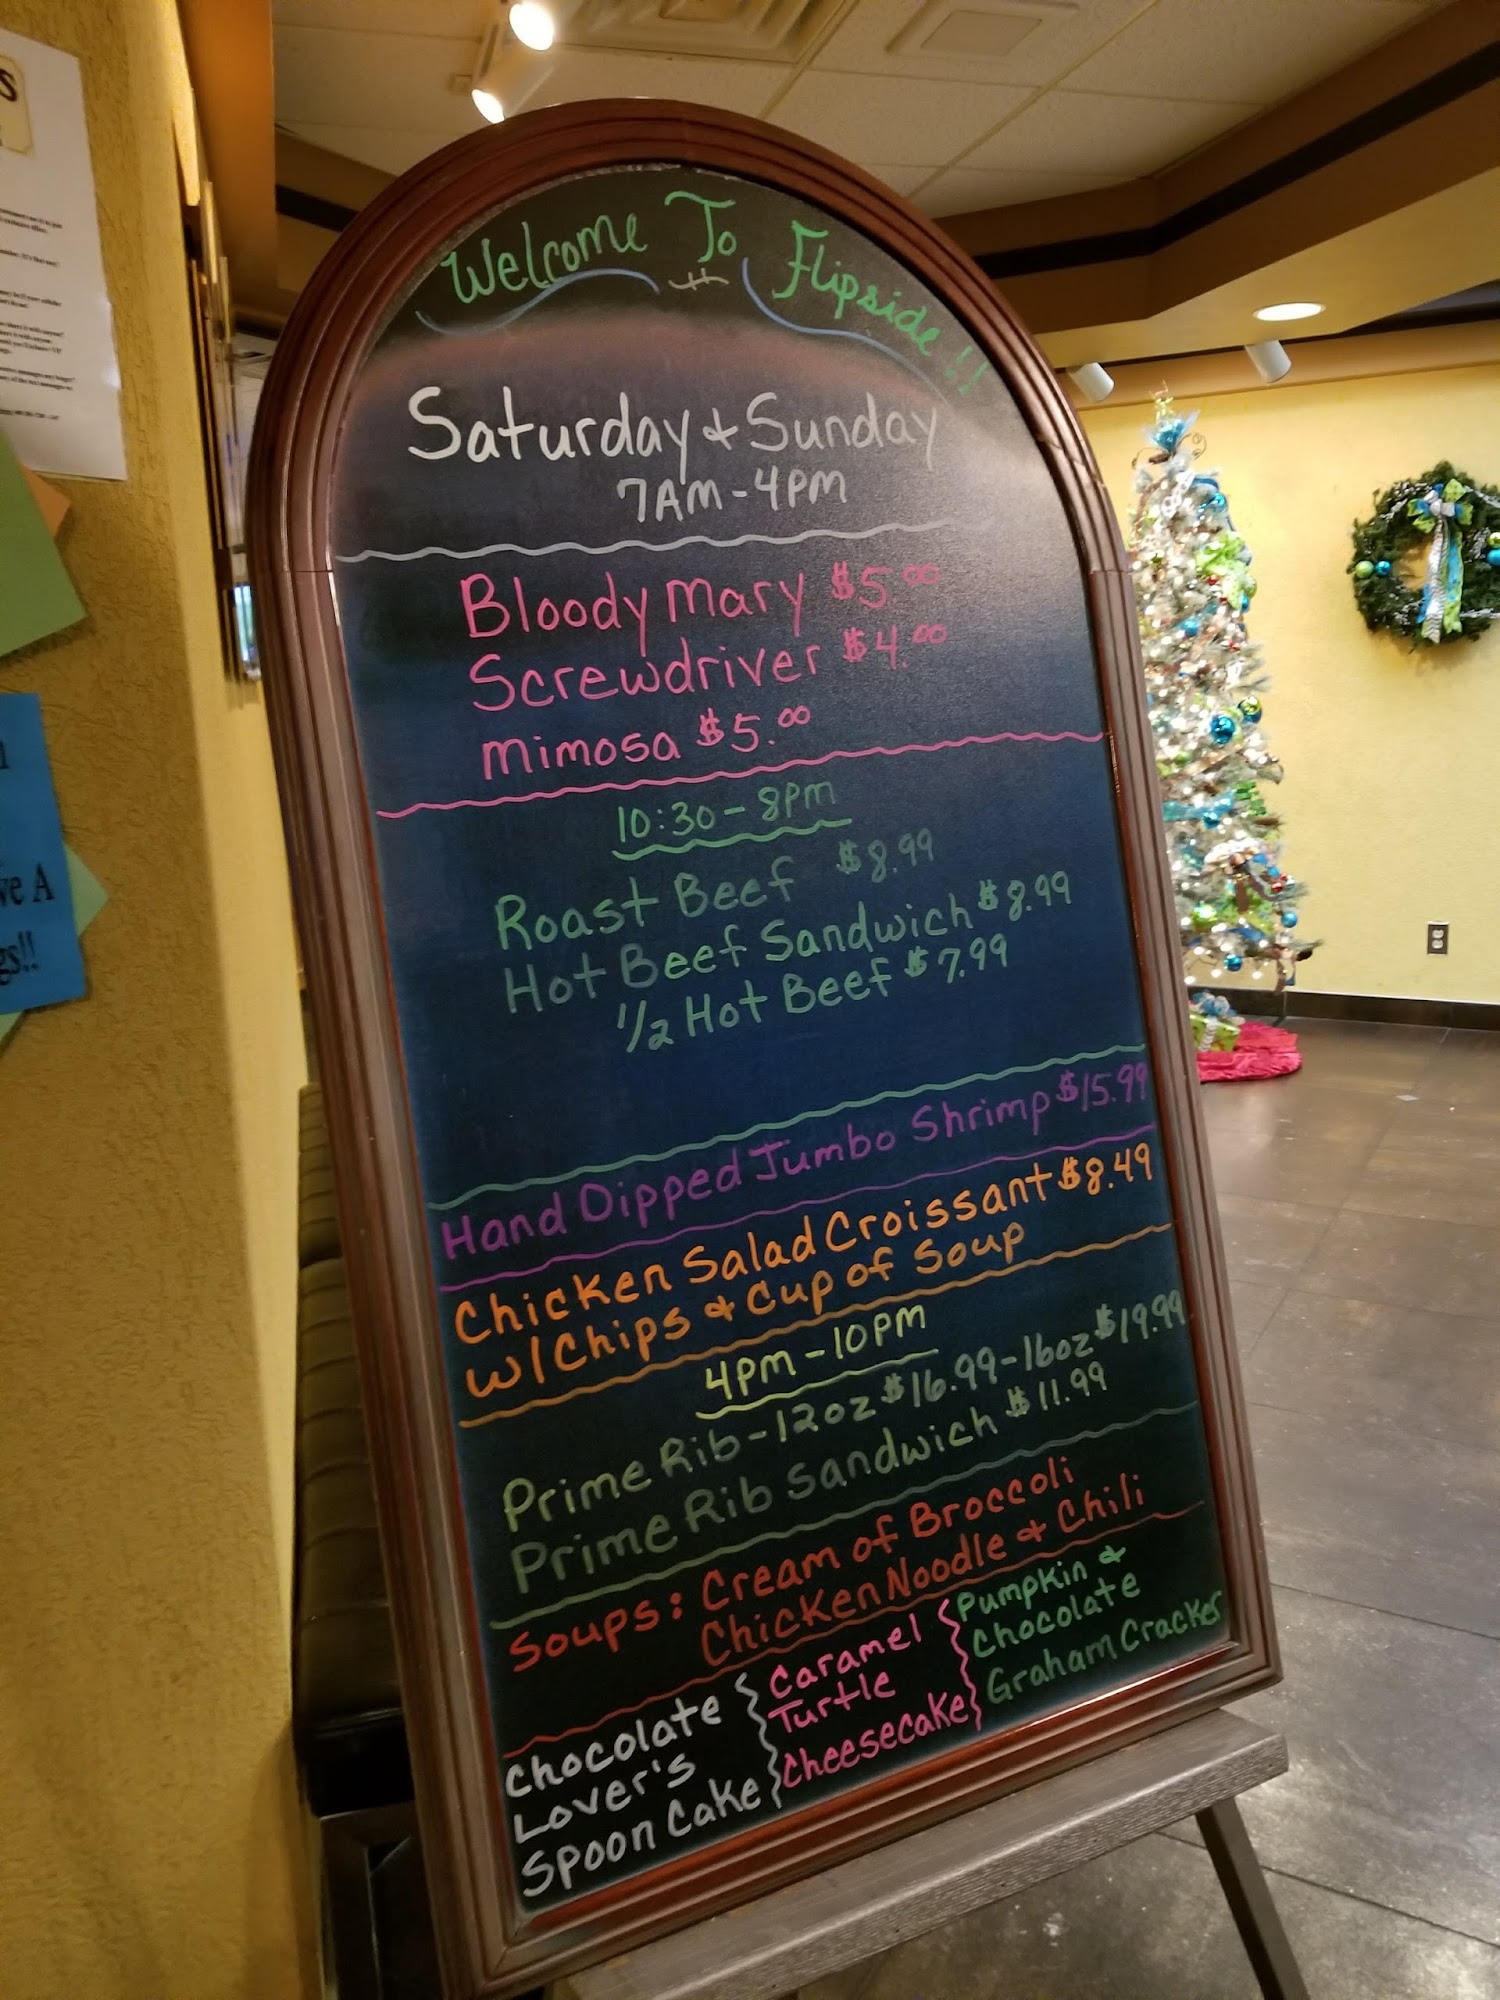 Welcome To Flipside!!
Saturday & Sunday
7AM-4PM
Bloody Mary $5.00
Screwdriver $4.00
Mimosa $5.00
10:30-8PM
Roast Beef $8.99
Hot Beef Sandwich $8.99
1/2 Hot Beef $7.99
Hand Dipped Jumbo Shrimp $15.99
Chicken Salad Croissant $8.49
w/Chips & Cup of Soup
4PM-10PM
Prime Rib-12oz $16.99-16oz $19.99
Prime Rib Sandwich $11.99
Soups: Cream of Broccoli
Chicken Noodle & Chili
Chocolate
Lover's
Spoon Cake
Caramel
Turtle
Cheesecake
Pumpkin &
Chocolate
Graham Cracker
ve A
gs!!